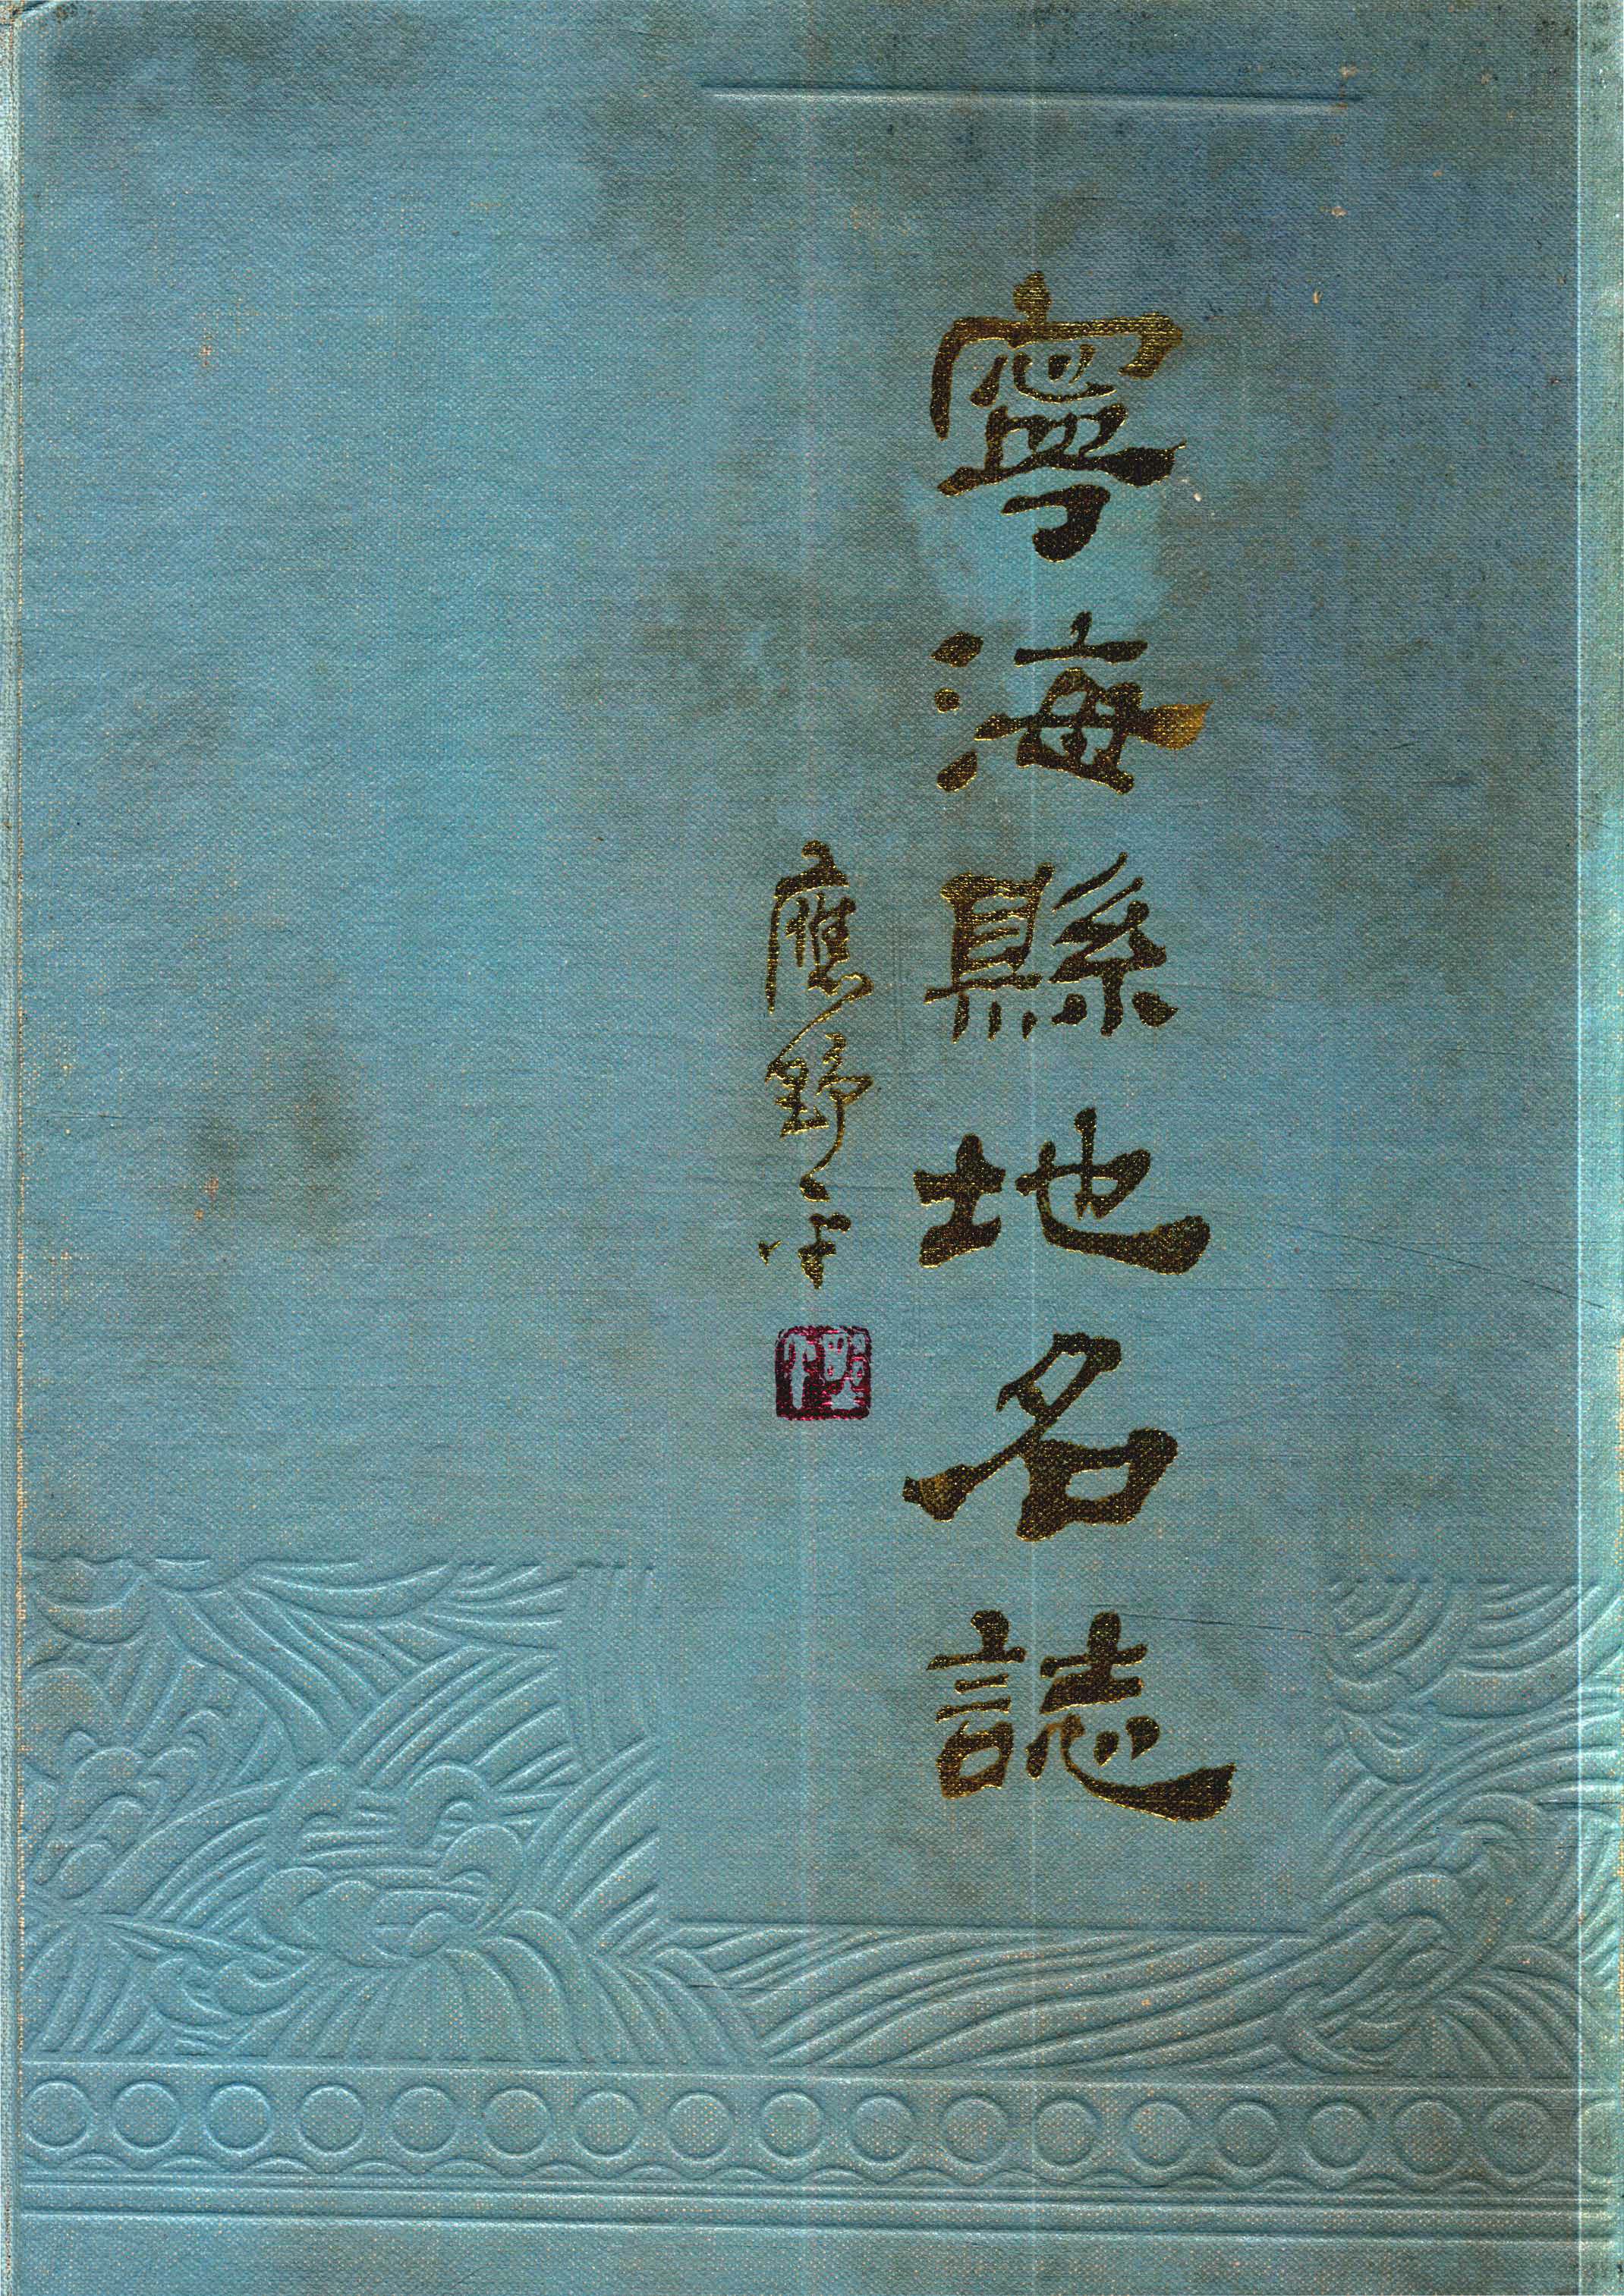 寧海縣地名誌
應野平